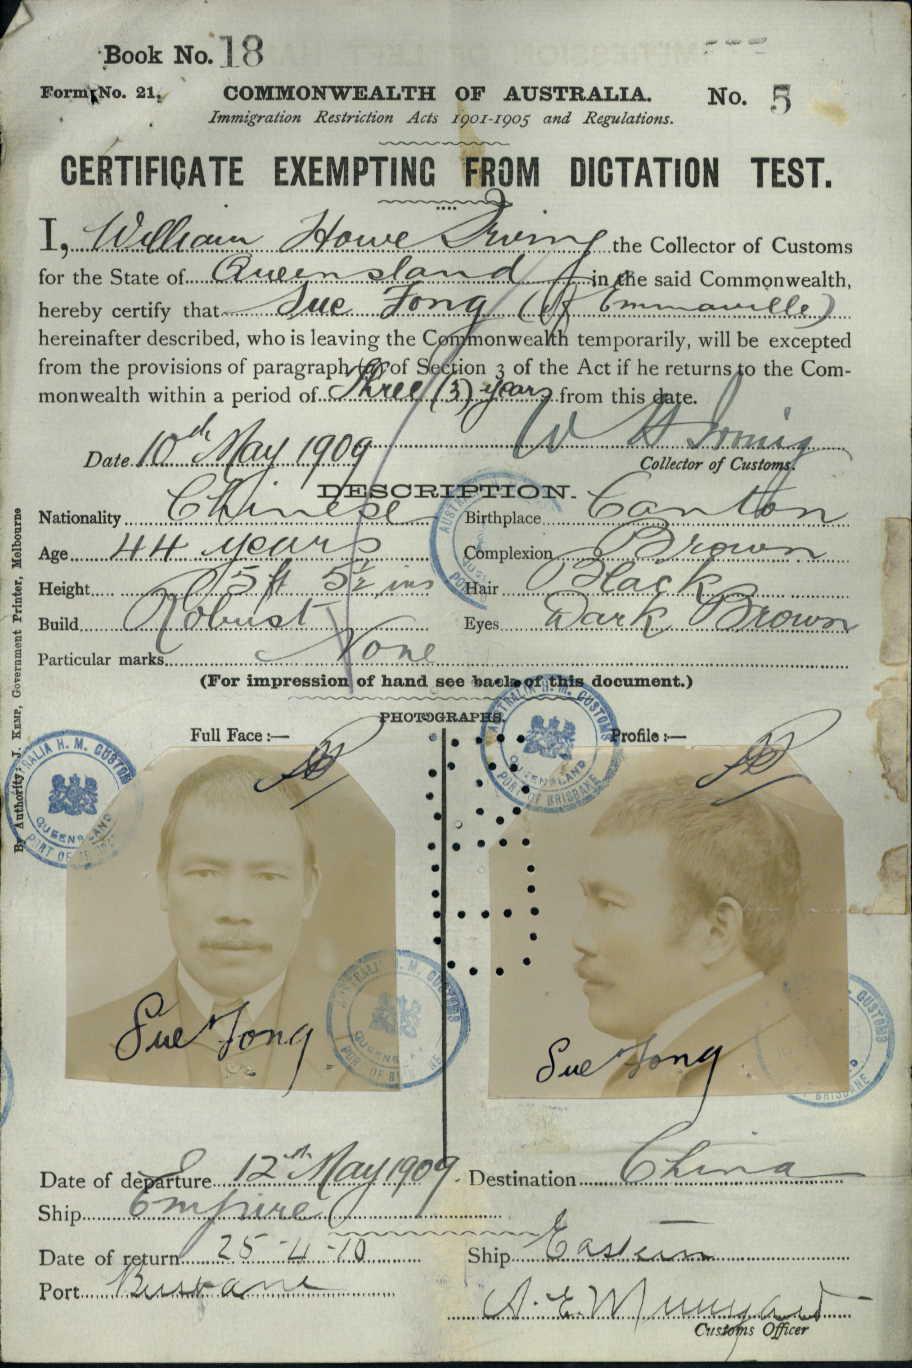 Book No. 18
Form No. 21. COMMONWEALTH OF AUSTRALIA. No. 5
Immigration Restriction Acts 1901-1905 and Regulations.
CERTIFICATE EXEMPTING FROM DICTATION TEST.
I, William Howe Irving the Collector of Customs
for the State of Queensland in the said Commonwealth,
hereby certify that Sue Fong (of Emmaville)
hereinafter described, who is leaving the Commonwealth temporarily, will be excepted
from the provisions of paragraph (a) of Section 3 of the Act if he returns to the Com-
monwealth within a period of Three (3) years from this date.
W H Irving
Date 10th May 1909 Collector of Customs.
DESCRIPTION.
Nationality Chinese Birthplace Canton
Age 44 years Complexion Brown
Height 5 ft 5½ ins Hair Black
Build Robust Eyes Dark Brown
Particular marks None
(For impression of hand see back of this document.)
PHOTOGRAPHS.
Full Face :— Profile :—
AUSTRALIA H. M. CUSTOMS
QUEENSLAND
PORT OF BRISBANE
Sue Fong Sue Fong
Date of departure 12th May 1909. Destination China
Ship Empire
Date of return 25-4-10 Ship Eastern
Port Brisbane
Customs Officer
By Authority: J. KEMP, Government Printer, Melbourne